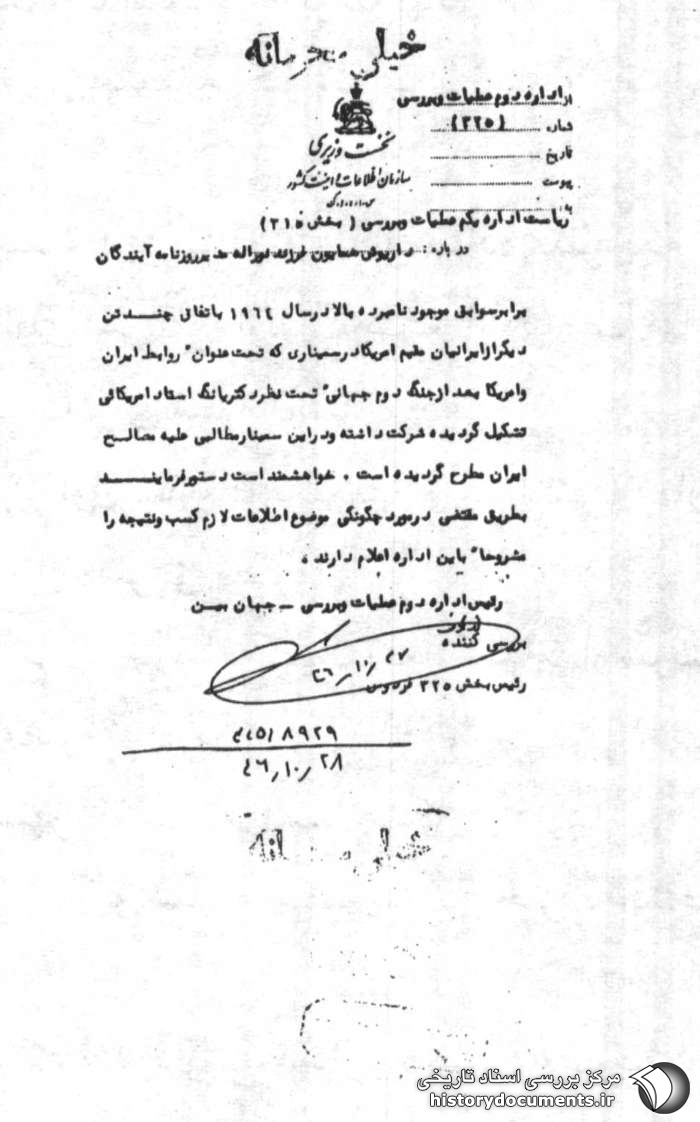 خیلی محرمانه
از اداره دوم عملیات وبررسی
شماره (۳۲۵)
تاریخ
پیوست
نخست وزیری
سازمان اطلاعات و امنیت کشور
س.ا.و.ا.ک
به: ریاست اداره یکم عملیات وبررسی ( بخش ۳۱۵ )
در باره : داریوش همایون فرزند نوراله مدیرروزنامه آیندگان
برابرسوابق موجود نامبرده بالا درسال ۱۹۶٤ باتفاق چنـــد تن
دیگرازایرانیان مقیم امریکا درسمیناری که تحت عنوان " روابط ایران
وامریکا بعد ازجنگ دوم جهانی" تحت نظر دکتریانگ استاد امریکائی
تشکیل گردیده شرکت داشته ودراین سمینار مطالبی علیه مصالـح
ایران مطرح گردیده است . خواهشمند است دستورفرماینـــــد
بطریق مقتضی درمورد چگونگی موضوع اطلاعات لازم کسب ونتیجه را
مشروحا" باین اداره اعلام دارند .
رئیس اداره دوم عملیات وبررسی ــ جهان بیـن
بررسی کننده
٤٦/۱۰/۲۷
رئیس بخش ۳۲۵ فردوس
۸۹۲۹
٤٦/۱۰/۲۸
خیلی محرمانه
مرکز بررسی اسناد تاریخی
historydocuments.ir